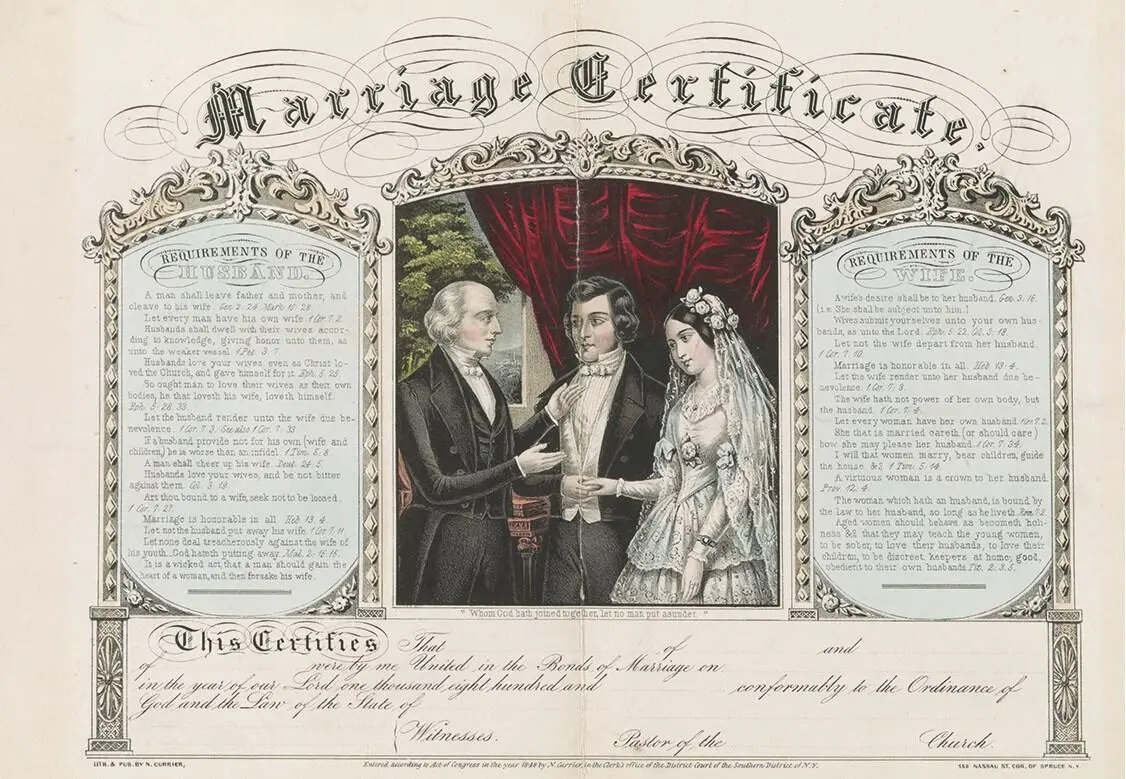 Marriage Certificate.
REQUIREMENTS OF THE
HUSBAND.
A man shall leave father and mother, and
cleave to his wife. Gen. 2. 24. Mark 10. 28.
Let every man have his own wife 1 Cor. 7. 2.
Husbands shall dwell with their wives accor-
ding to knowledge, giving honor unto them, as
unto the weaker vessel. 1 Pet. 3. 7.
Husbands love your wives, even as Christ lo-
ved the Church, and gave himself for it. Eph. 5. 25.
So ought man to love their wives as their own
bodies, he that loveth his wife, loveth himself.
Eph. 5. 28. 33.
Let the husband render unto the wife due be-
nevolence. 1 Cor. 7. 3. See also 1 Cor. 7. 33.
If a husband provide not for his own (wife and
children) he is worse than an infidel. 1 Tim. 5. 8.
A man shall cheer up his wife. Deut. 24. 5.
Husbands love your wives, and be not bitter
against them. Col. 3. 19.
Art thou bound to a wife, seek not to be loosed.
1 Cor. 7. 27.
Marriage is honorable in all. Heb. 13. 4.
Let not the husband put away his wife. 1 Cor. 7. 11.
Let none deal treacherously against the wife of
his youth. God hateth putting away. Mal. 2. 15. 16.
It is a wicked act, that a man should gain the
heart of a woman, and then forsake his wife.
REQUIREMENTS OF THE
WIFE.
A wife's desire shall be to her husband. Gen. 3. 16.
(i.e. She shall be subject unto him.)
Wives submit yourselves unto your own hus-
bands, as unto the Lord. Eph. 5. 22. Col. 3. 18.
Let not the wife depart from her husband.
1 Cor. 7. 10.
Marriage is honorable in all. Heb. 13. 4.
Let the wife render unto her husband due be-
nevolence. 1 Cor. 7. 3.
The wife hath not power of her own body, but
the husband. 1 Cor. 7. 4.
Let every woman have her own husband 1 Cor. 7. 2.
She that is married careth (or should care)
how she may please her husband. 1 Cor. 7. 34.
I will that women marry, bear children, guide
the house &c. 1 Tim. 5. 14.
A virtuous woman is a crown to her husband.
Prov. 12. 4.
The woman which hath an husband, is bound by
the law to her husband, so long as he liveth. Rom. 7. 2.
Aged women should behave as becometh holi-
ness &c. that they may teach the young women,
to be sober, to love their husbands, to love their
children, to be discreet keepers at home, good,
obedient to their own husbands. Tit. 2. 3. 5.
"Whom God hath joined together, let no man put asunder."
This Certifies That of and
of were by me United in the Bonds of Marriage on
in the year of our Lord one thousand eight hundred and conformably to the Ordinance of
God and the Law of the State of
Witnesses. Pastor of the Church.
LITH. & PUB. BY N. CURRIER,
Entered according to Act of Congress in the year 1848 by N. Currier, in the Clerk's office of the District Court of the Southern District of N.Y.
152 NASSAU ST. COR. OF SPRUCE N.Y.